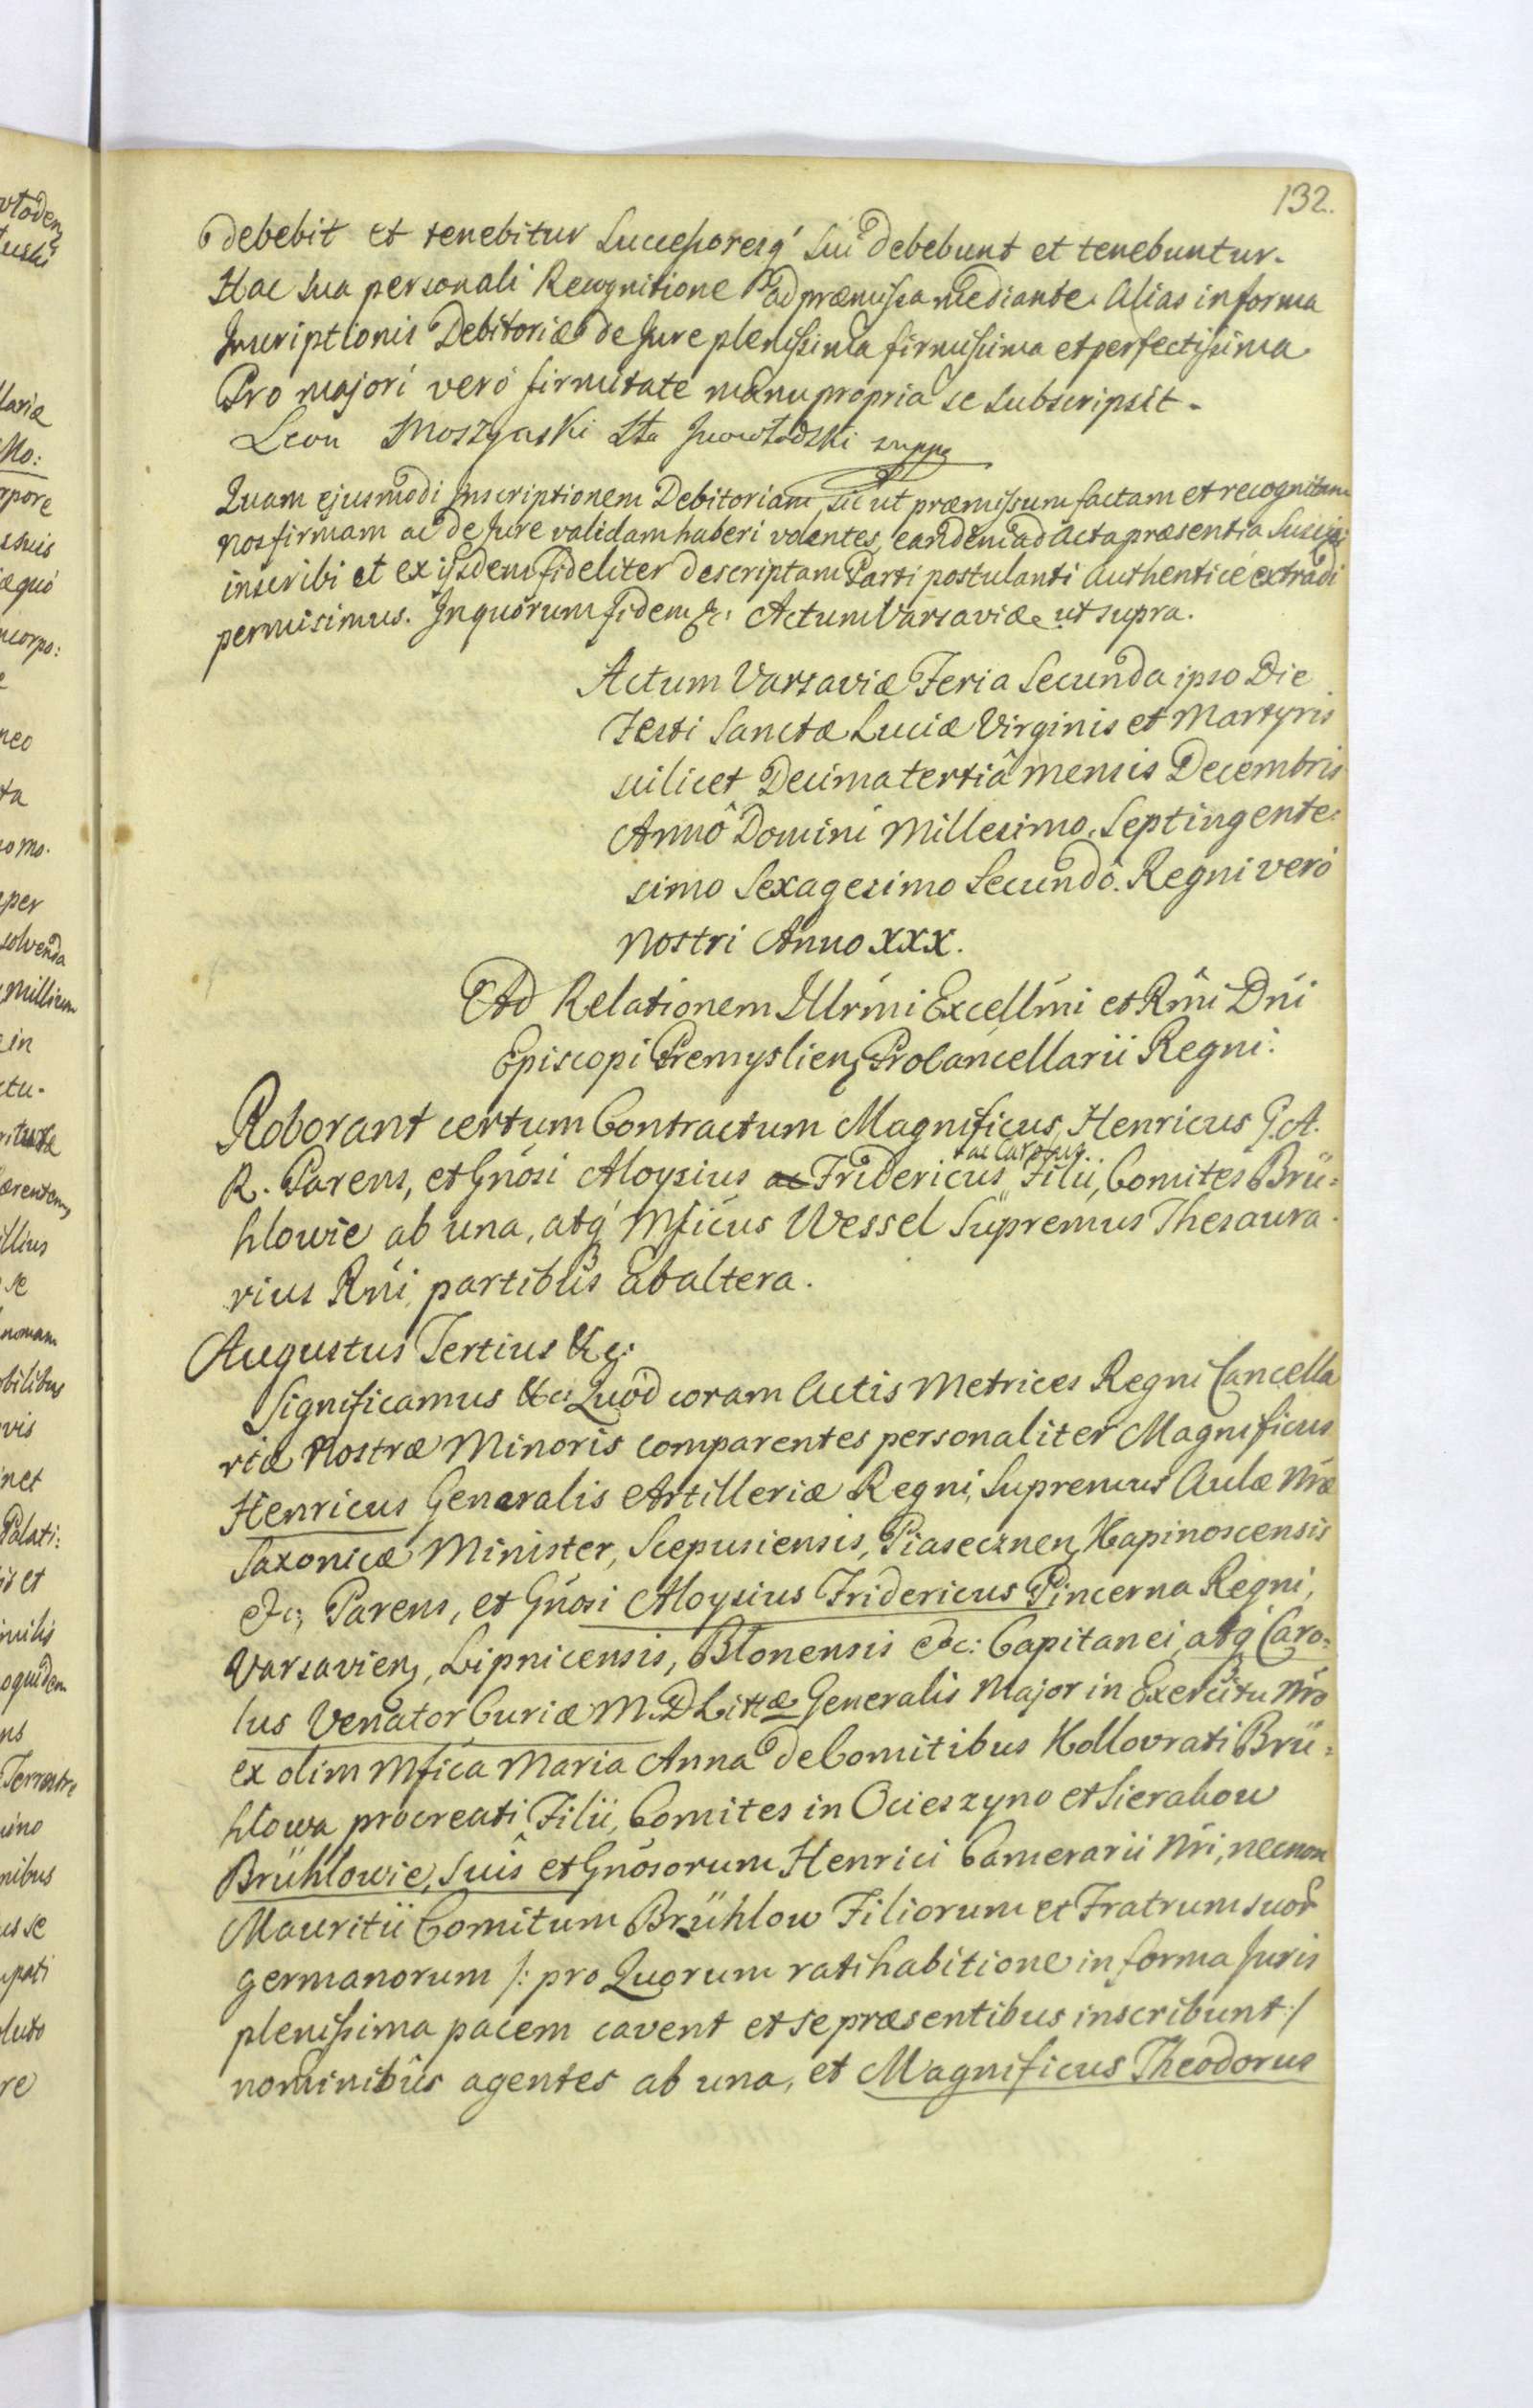 132.
debebit et tenebitur Successoresq' sui debebunt et tenebuntur.
Hac sua personali Recognitione ad præmissa mediante. Alias in forma
Inscriptionis Debitoriæ de Jure plenissima firmissima et perfectissima
Pro majori veró firmitate manu propria se subscripsit.
Leon Moszynski Sta Inowłodzki mppa
Quam ejusmodi Inscriptionem Debitoriam, sic ut præmissum factam et recognitam
nos firmam ac de Jure validam haberi volentes, eandem ad Acta præsentia Suscipi
inscribi et ex ijsdem fideliter descriptam Parti postulanti Authenticé extradi
permisimus. In quórum fidem &c: Actum Varsaviæ ut supra.
Actum Varsaviæ Feria Secunda ipso Die
Festi Sanctæ Luciæ Virginis et Martyris
scilicet Decima tertiâ mensis Decembris
Annô Domini Millesimo. Septingente:
simo Sexagesimo Secundô. Regni veró
nostri Anno XXX.
Ad Relationem Illrmi Excellmi et Rmi Dni
Episcopi Premyslien, Procancellarii Regni.
Roborant certum Contractum Magnificus Henricus G.A.
R. Parens, et Gnosi Aloysius ac Fridericus ac Carolus Filii, Comites Brü:
hlowie ab una, atq' Mficus Wessel Supremus Thesaura:
rius Rni partibus ab altera.
Augustus Tertius &c:
Significamus &c: Quód coram Actis Metrices Regni Cancella
riæ Nostræ Minoris comparentes personaliter Magnificus
Henricus Generalis Artilleriæ Regni, Supremus Aulæ Nræ
Saxonicæ Minister, Scepusiensis, Piasecznen, Kapinoscensis
&c; Parens, et Gnosi Aloysius Fridericus Pincerna Regni,
Varsavien, Lipnicensis, Błonensis &c: Capitanei, atq' Caro:
lus Venator Curiæ M.D. Littæ Generalis Major in Exercitu Nro
ex olim Mfica Maria Anna de Comitibus Kollovrati Brü:
hlowa procreati Filii, Comites in Ocieszyno et Sierakow
Brühlowie, suis et Gnosorum Henrici Camerarii Nri, necnon
Mauritii Comitum Brühlow Filiorum et Fratrum suor
germanorum /: pro Quorum ratihabitione in forma Juris
plenissima pacem cavent et se præsentibus inscribunt :/
nominibus agentes ab una, et Magnificus Theodorus